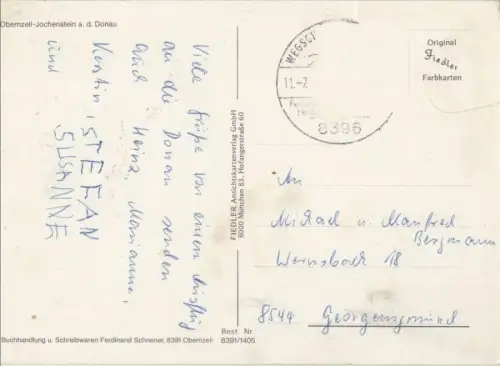 Obernzell-Jochenstein a. d. Donau
Viele Grüße von einem Ausflug
an die Donau senden
Euch Heinz, Marianne,
Kerstin, STEFAN
und SUSANNE
FIEDLER Ansichtskartenverlag GmbH
8000 München 83, Hofangerstraße 60
WEGSC
11.-7.
8396
Original
Fiedler
Farbkarten
An
Michael u. Manfred
Bergmann
Wernsbach 18
8544 Georgensgmünd
Best Nr
Buchhandlung u. Schreibwaren Ferdinand Schreiner, 8391 Obernzell 8391/1405